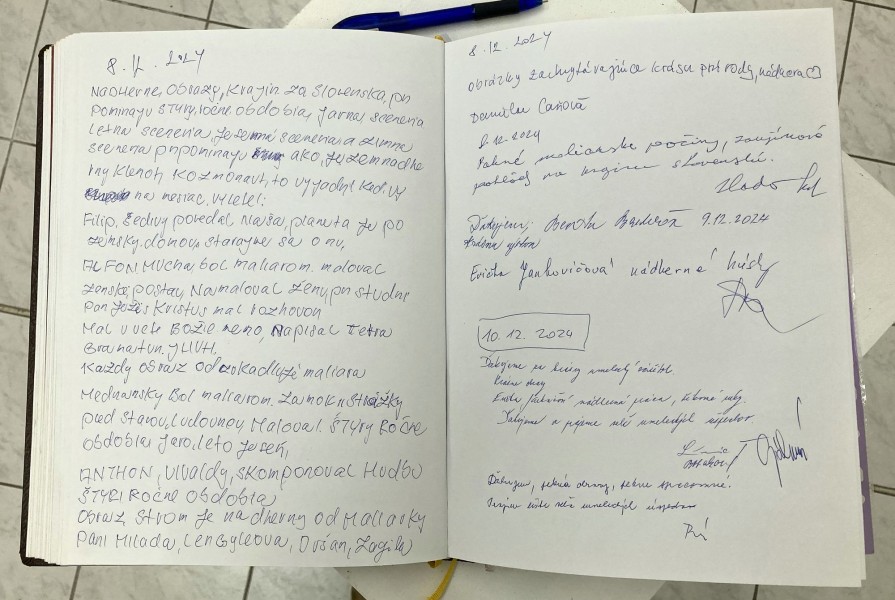 8. 12. 2024
Nadherne, Obrazy, Krajin za Slovenska, pri
pominaju ŠTYRY, ročne obdobia, Jarna sceneria
Letna sceneria, Jesenná sceneria a zimna
sceneria pripominaju ako, Juzemnadhe
rny Klenot, Kozmonauti, to vyjadril Ked, vy
na mesiac. vyleteli
Filip. Šedivy povedal Naša, planeta Je po
zemsky. domov, starajme sa o nu,
ALFON Mucha, bol maliarom. maloval
ženské, postavy, Namaloval ženy, pri studne
Pan Ježiš Kristus mal rozhovor
Mal v uchu Božie meno, Napisal Tetra
Gramatun. JHVH.
Každy obraz odzrkadluje maliara
Mednansky Bol maliarom. zamok n Strážky
pred stavou, Ludovnoy Maloval. ŠTYRY Ročne
obdobia. Jaro, leto Jeseň,
ANTHON, VIVALDY, SKomponoval Hudbu
ŠTYRI Ročne obdobia
Obraz, Strom Je nadherny od Maliarky
Pani Milada, Lengyleova, Dušan, Zagila
8. 12. 2024
Obrázky zachytávajúce krásu prírody, nádhera ♡
8.12.2024
Pekné maliarske počiny, zaujímavé
pohľady na krajinu slovenskú.
Ďakujem, 9.12.2024
Krásna výstava
Evička Jankovičová nádherné kúsky
10. 12. 2024
Ďakujeme za krásny umelecký zážitok.
nádherná práca,
Ďakujeme a prajeme veľa umeleckých úspechov
Ďakujem, pekné obrazy, pekne spracované.
Prajem ešte veľa umeleckých úspechov